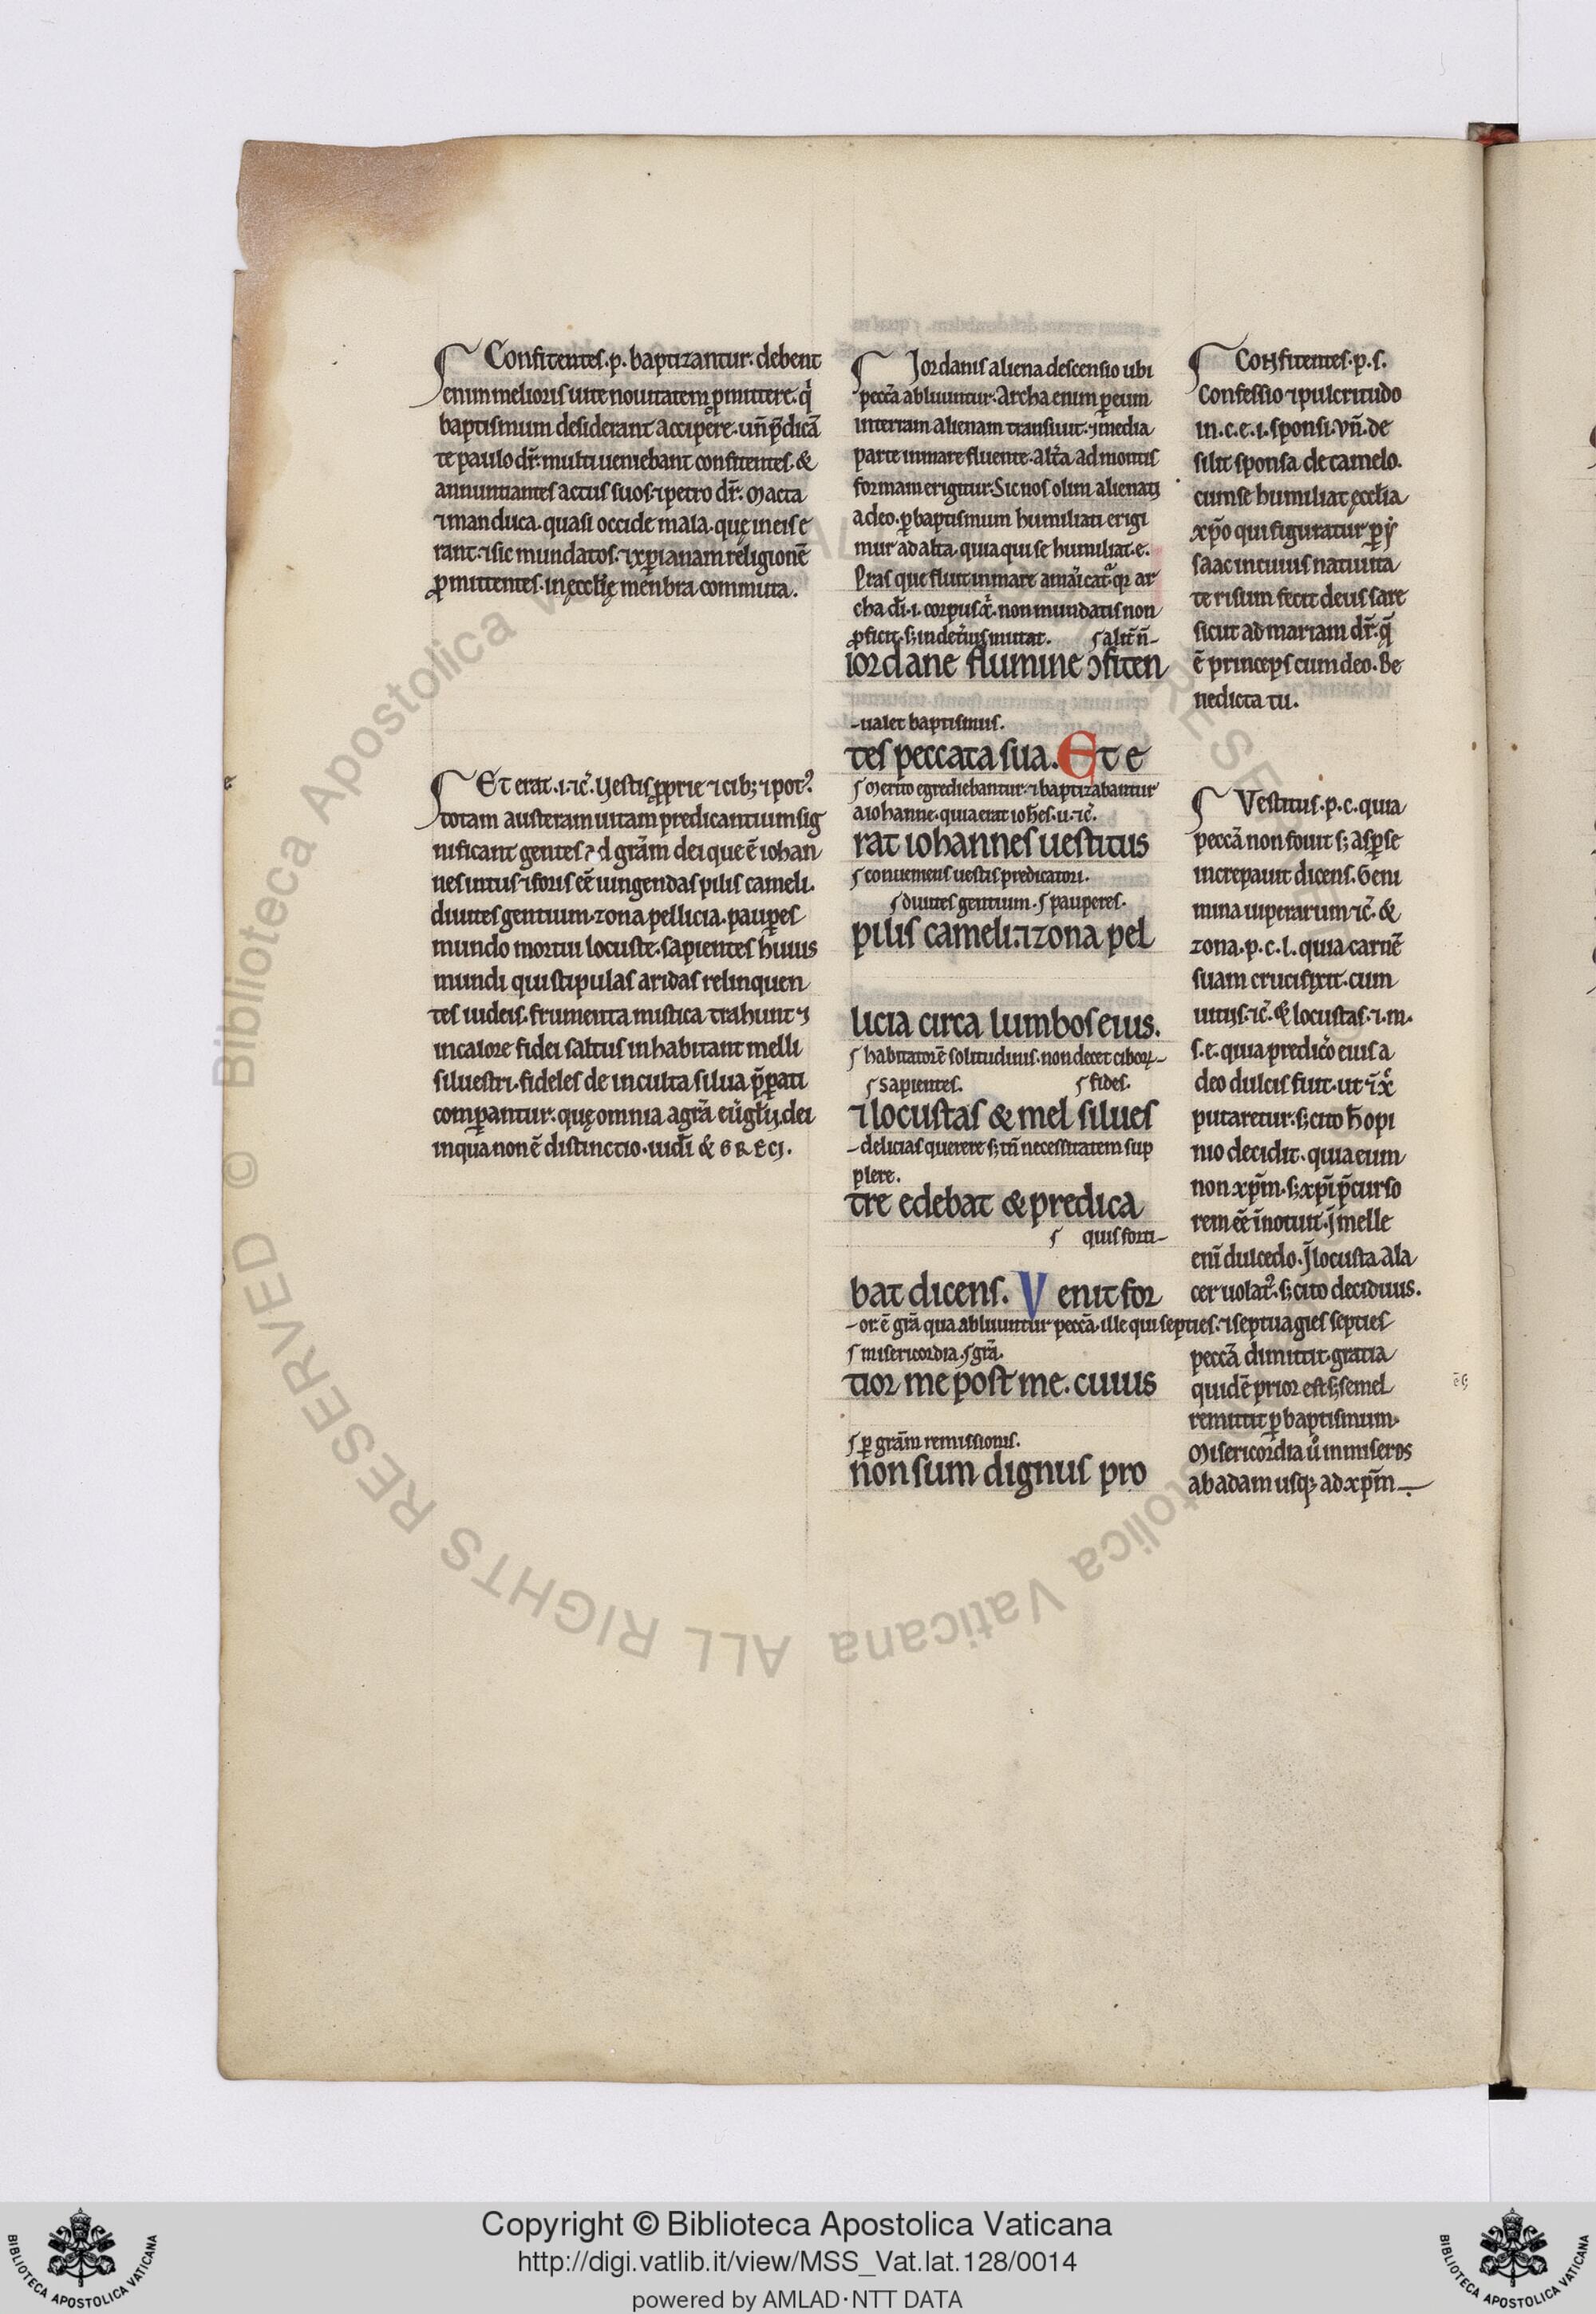 Confitentes .p. baptizantur: debent
enim melioris uite nouitatem ꝓmittere. q̇
baptismum desiderant accipere. uñ p̃dicã
te paulo dr̃. multi ueniebant confitentes. &
annuntiantes actus suos. ⁊ petro dr̃. Macta
⁊ manduca. quasi occide mala. quę in eis e
rant. ⁊ sic mundatos. ⁊ xp̃ianam religionẽ
ꝓmittentes. in ęccłię menbra commuta.
Et erat .i. ⁊c̃. Uestis ꝓprie ⁊ cib; ⁊ pot᷒
totam austeram uitam predicantium sig
nificant gentes ad grãm dei que ẽ iohan
nes intus ⁊ foris eẽ iungendas pilis cameli.
diuites gentium. zona pellicia. pauꝑes
mundo mortui locuste. sapientes huius
mundi qui stipulas aridas relinquen
tes iudeis. frumenta mistica trahunt ⁊
in calore fidei saltus inhabitant melli
siluestri. fideles de inculta silua p̃parati
comꝑantur. quę omnia agr̃a eũgłij. dei
in qua non ẽ distinctio. iudĩ & GRECI.
Iordanis aliena descensio ubi
peccã abluuntur. Archa enim ꝑ eum
in terram alienam transiuit. ⁊ media
parte in mare fluente. alt̃a ad montis
formam erigitur. Sic nos olim alienati
a deo. ꝑ baptismum humiliati erigi
mur ad alta. quia qui se humiliat. e.
Pras que fluit in mare amãicat̃. qr ar
cha dĩ .i. corpus x̃. non mundatis non
ꝓficit. s; in det̃ius mutat. alit̃ ñ-
iordane flumine ɔfiten
-ualet baptismus.
tes peccata sua. Et e
Merito egrediebantur. ⁊ baptizabantur
a iohanne. quia erat ioħes. u. ⁊c̃.
rat iohannes uestitus
conueniens uestis predicatori.
diuites gentium. pauperes.
pilis cameli. ⁊ zona pel
licia circa lumbos eius.
habitatorẽ solitudinis. non decet ciboꝝ-
sapientes. fides.
⁊ locustas & mel silues
-delicias querere s; tñ necessitatem sup
plere.
tre edebat & predica
quis forti-
bat dicens. Venit for
-or. ẽ grã qua abluuntur peccã. ille qui septies. ⁊ septuagies septies
misericordia. grã.
tior me post me. cuius
ꝑ grãm remissionis.
non sum dignus pro
Confitentes .p. s.
Confessio ⁊ pulcritudo
in. c. e. i. sponsi. Vñ. de
silit sponsa de camelo.
cum se humiliat ęccłia
xp̃o qui figuratur ꝑ ẏ
saac in cuius natiuita
te risum fecit deus sare
sicut ad mariam dr̃. q̃
ẽ princeps cum deo. Be
nedicta tu.
Vestitus. p. c. quia
peccã non fouit s; aspere
increpauit dicens. Geni
mina uiperarum ⁊c̃. &
zona. p. c. l. quia carnẽ
suam crucifixit. cum
uitijs. ⁊c̃. & locustas. ⁊. m.
s. e. quia predic̃o eius a
deo dulcis fuit. ut ĩ x̃
putaretur. s; cito ħ opi
nio decidit. quia eum
non xp̃m. s; xp̃i p̃curso
rem eẽ ĩnotuit. Ĩ melle
enĩ dulcedo. Ĩ locusta ala
cer uolat᷒. s; cito deciduus.
peccã dimittit. gratia
quidẽ prior est s; semel
remittit ꝑ baptismum.
Misericordia ů in miseros
ab adam usq; ad xp̃m
Copyright © Biblioteca Apostolica Vaticana
http://digi.vatlib.it/view/MSS_Vat.lat.128/0014
powered by AMLAD·NTT DATA
BIBLIOTECA APOSTOLICA VATICANA
BIBLIOTECA APOSTOLICA VATICANA
© Biblioteca Apostolica Vaticana ALL RIGHTS RESERVED